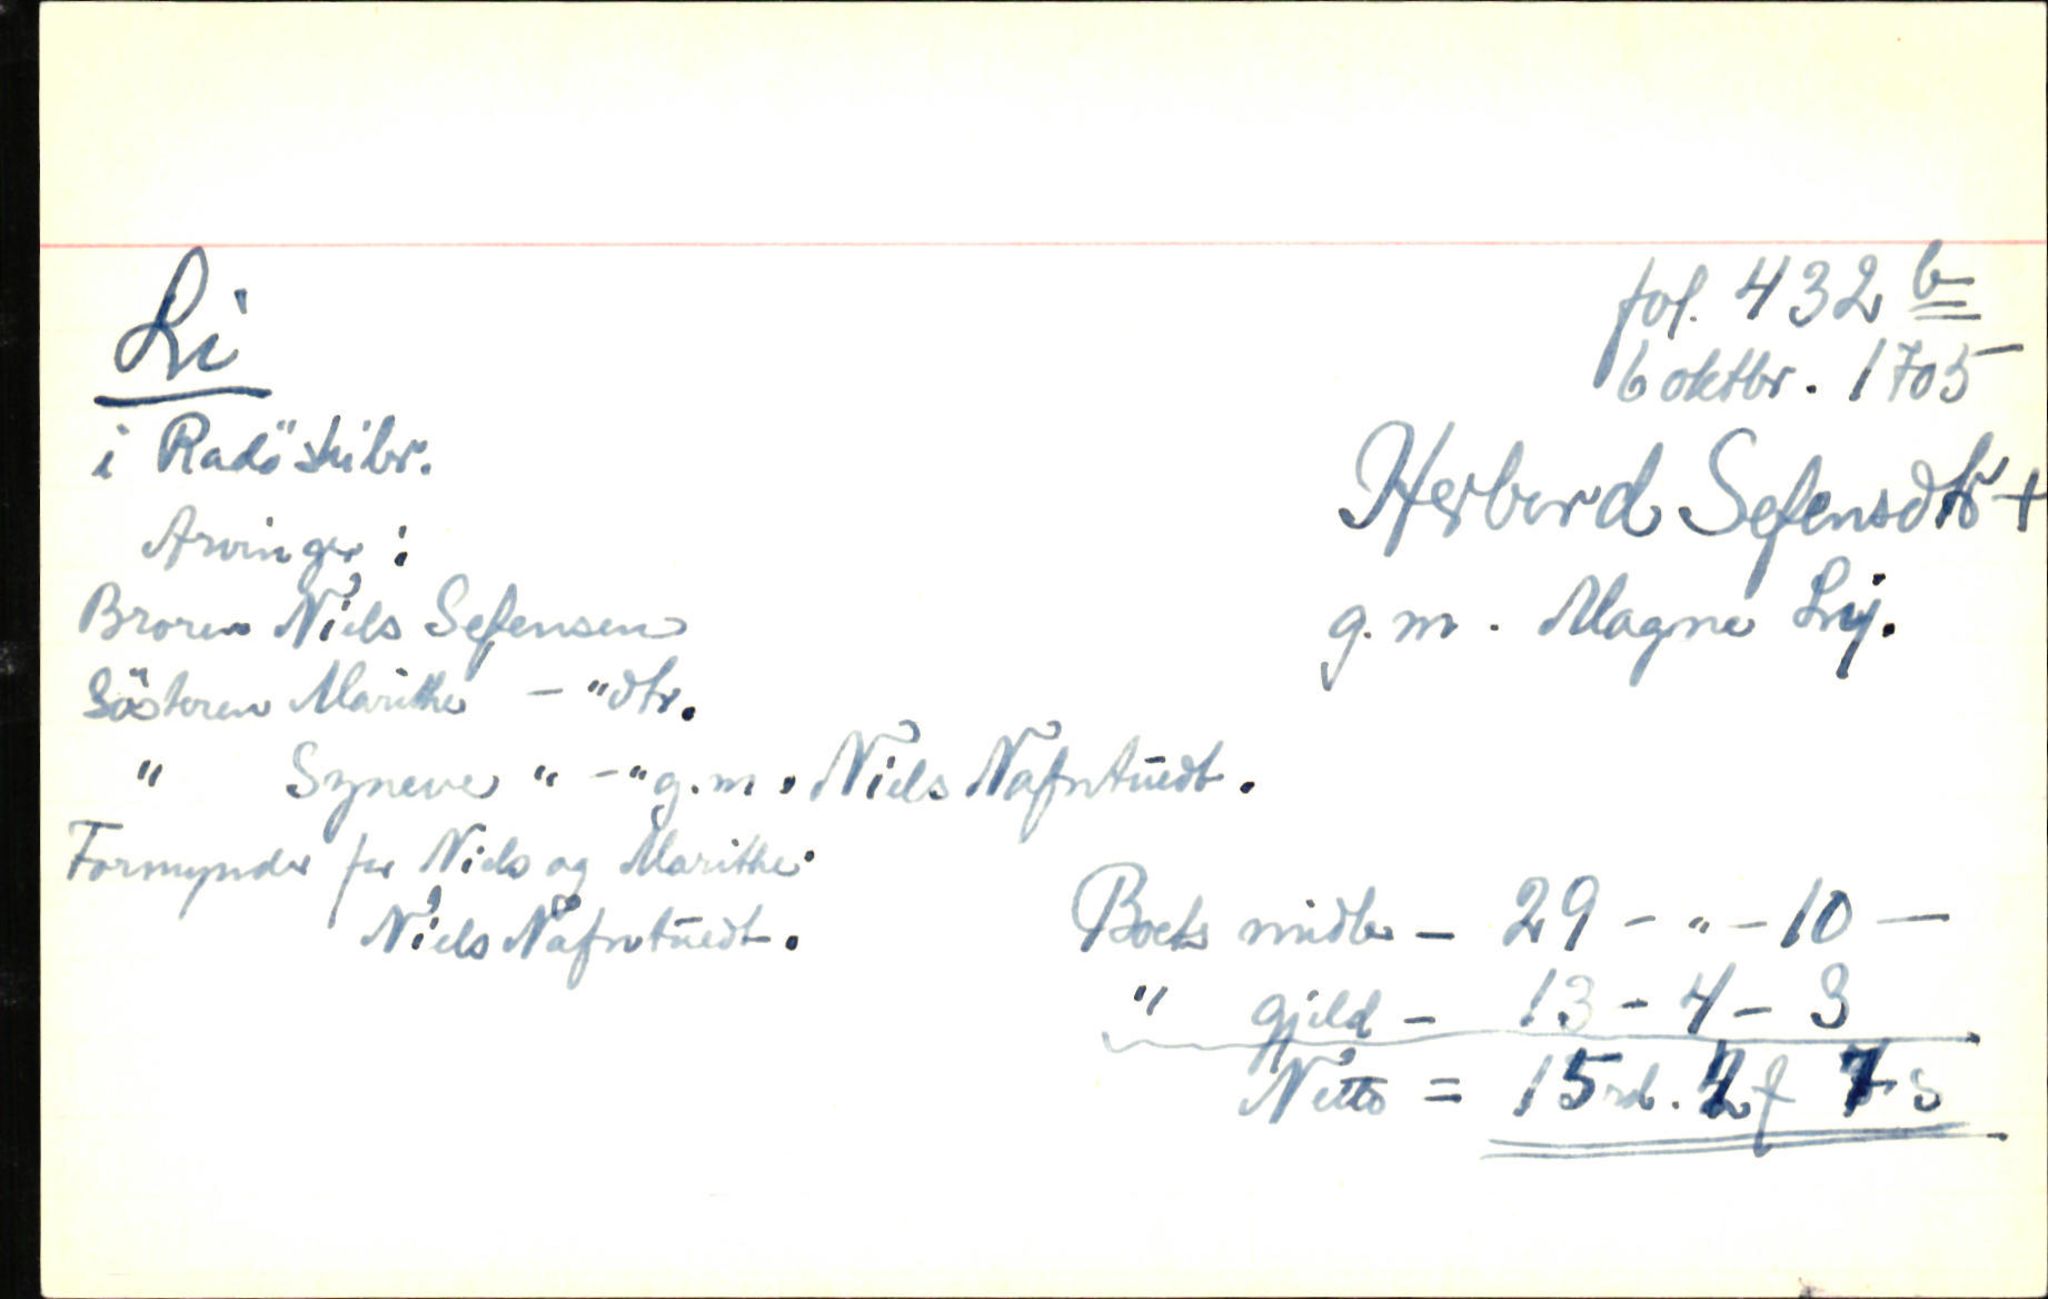 Li
fol. 432 b
6 oktbr. 1705
i Radö skibr.
Herbord Sefensdtr +
g.m. Magne Lij.
Arvinger :
Broren Niels Sefensen
Søsteren Marithe — " dtr.
" Syneve " — " g.m. Niels Nafntuedt.
Formynder for Niels og Marithe:
Niels Nåfntuedt.
Boets midler — 29 — " — 10 —
" gjeld — 13 — 4 — 3
Netto = 15 rd. 2 f 7 s